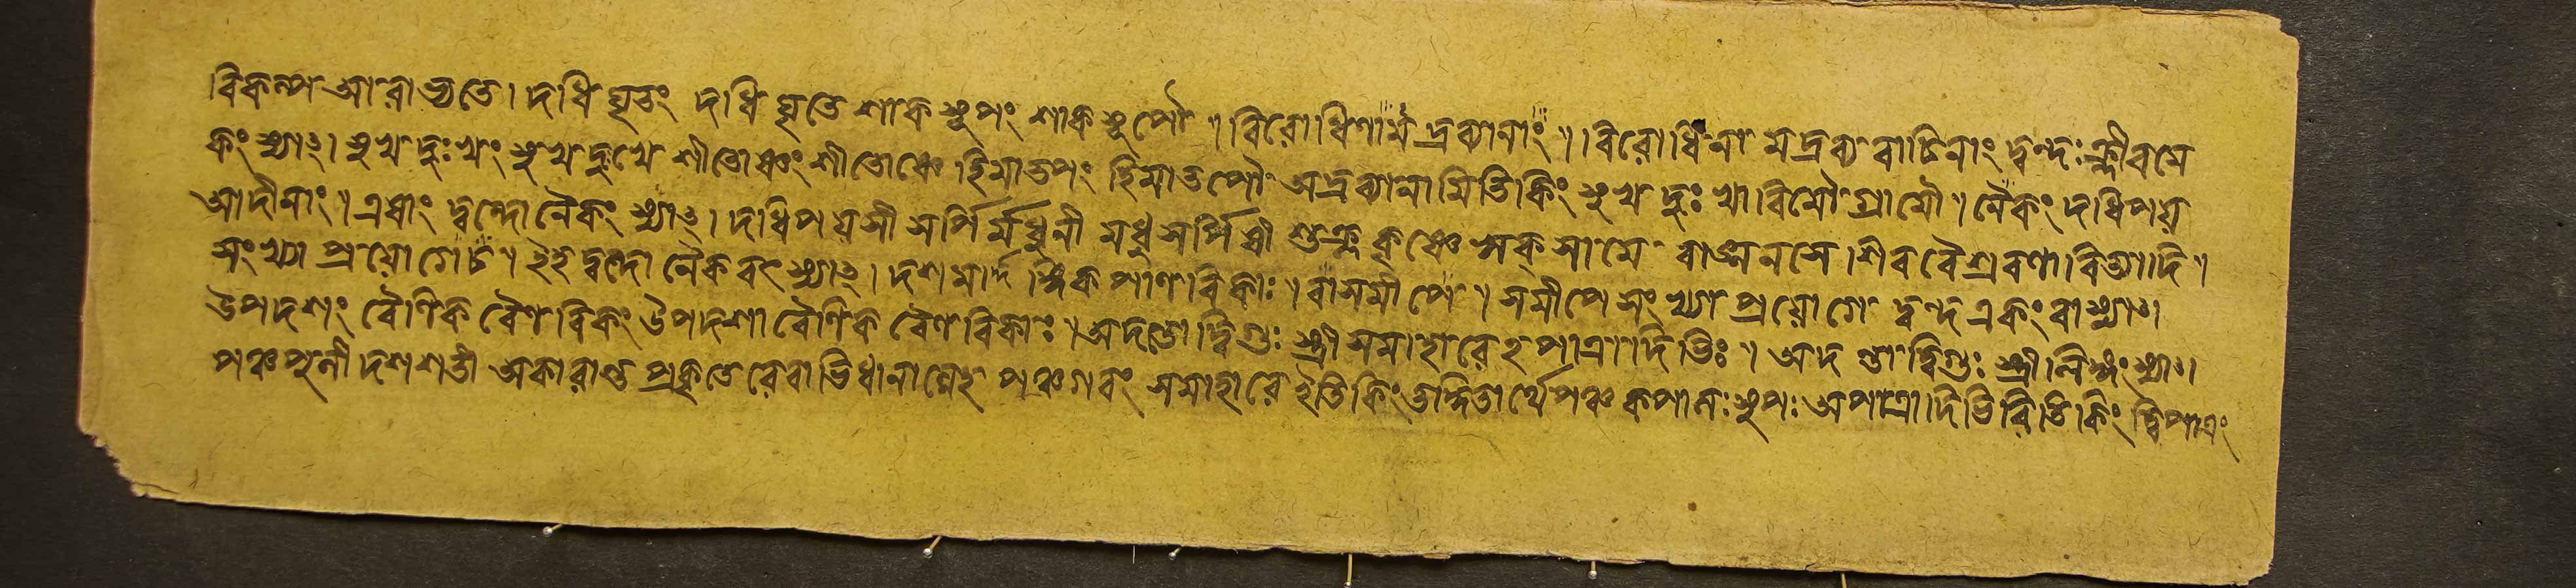 বিকল্প আরাভ্যতে। দধি ঘৃতং দধি ঘৃতে শাক সূপং শাক সূপৌ॥ বিরোধিণামদ্রব্যানাং॥ বিরোধিনা মদ্রব্য বাচিনাং দ্বন্দঃ ক্লীবমে
কং স্যাৎ। সুখ দুঃখং সুখ দুখে শীতোষ্ণং শীতোষ্ণে হিমাতপং হিমাতপৌ অদ্রব্যানামিতি কিং সুখ দুঃ খাবিমৌ গ্রামৌ॥ নৈকং দধিপয়
আদীনাং॥ এষাং দ্বন্দো নৈকং স্যাৎ। দধিপয়সী সর্পির্মধুনী মধুসর্পিষী শুক্লকৃষ্ণে ঋক্ সামে বাঙ্মনসে। শিববৈশ্রবণাবিত্যাদি॥
সংখ্যা প্রয়োগেচ॥ ইহ দ্বন্দো নৈকবৎ স্যাৎ। দশ মার্দঙ্গিক পাণবিকাঃ॥ বাসমীপে॥ সমীপে সংখ্যা প্রয়োগে দ্বন্দ একং বা স্যাৎ।
উপদশং বৈণিক বৈণবিকং উপদশা বৈণিক বৈণবিকাঃ॥ অদন্তো দ্বিগুঃ স্ত্রী সমাহারেহ পাত্রাদিভিঃ॥ অদন্তা দ্বিগুঃ স্ত্রীলিঙ্গং স্যাৎ।
পঞ্চপুলী দশশতী অকারান্ত প্রকৃতেরেবাভিধানান্নেহ পঞ্চগবং সমাহারে ইতি কিং তদ্ধিতার্থে পঞ্চকপালঃ সূপঃ অপাত্রাদিভিরিতি কিং দ্বিপাত্রং